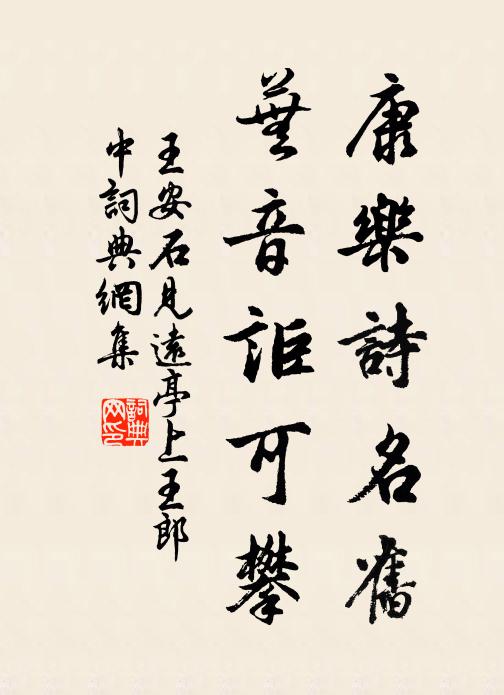 康樂詩名舊
蕪音詎可攀
王安石見遠亭上王郎
中詞典網集
詞典
网印